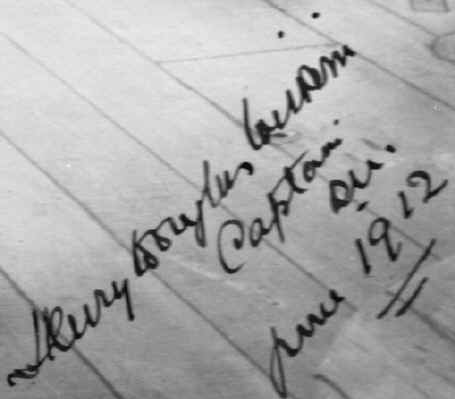 Henry Douglas
Captain
June 1912